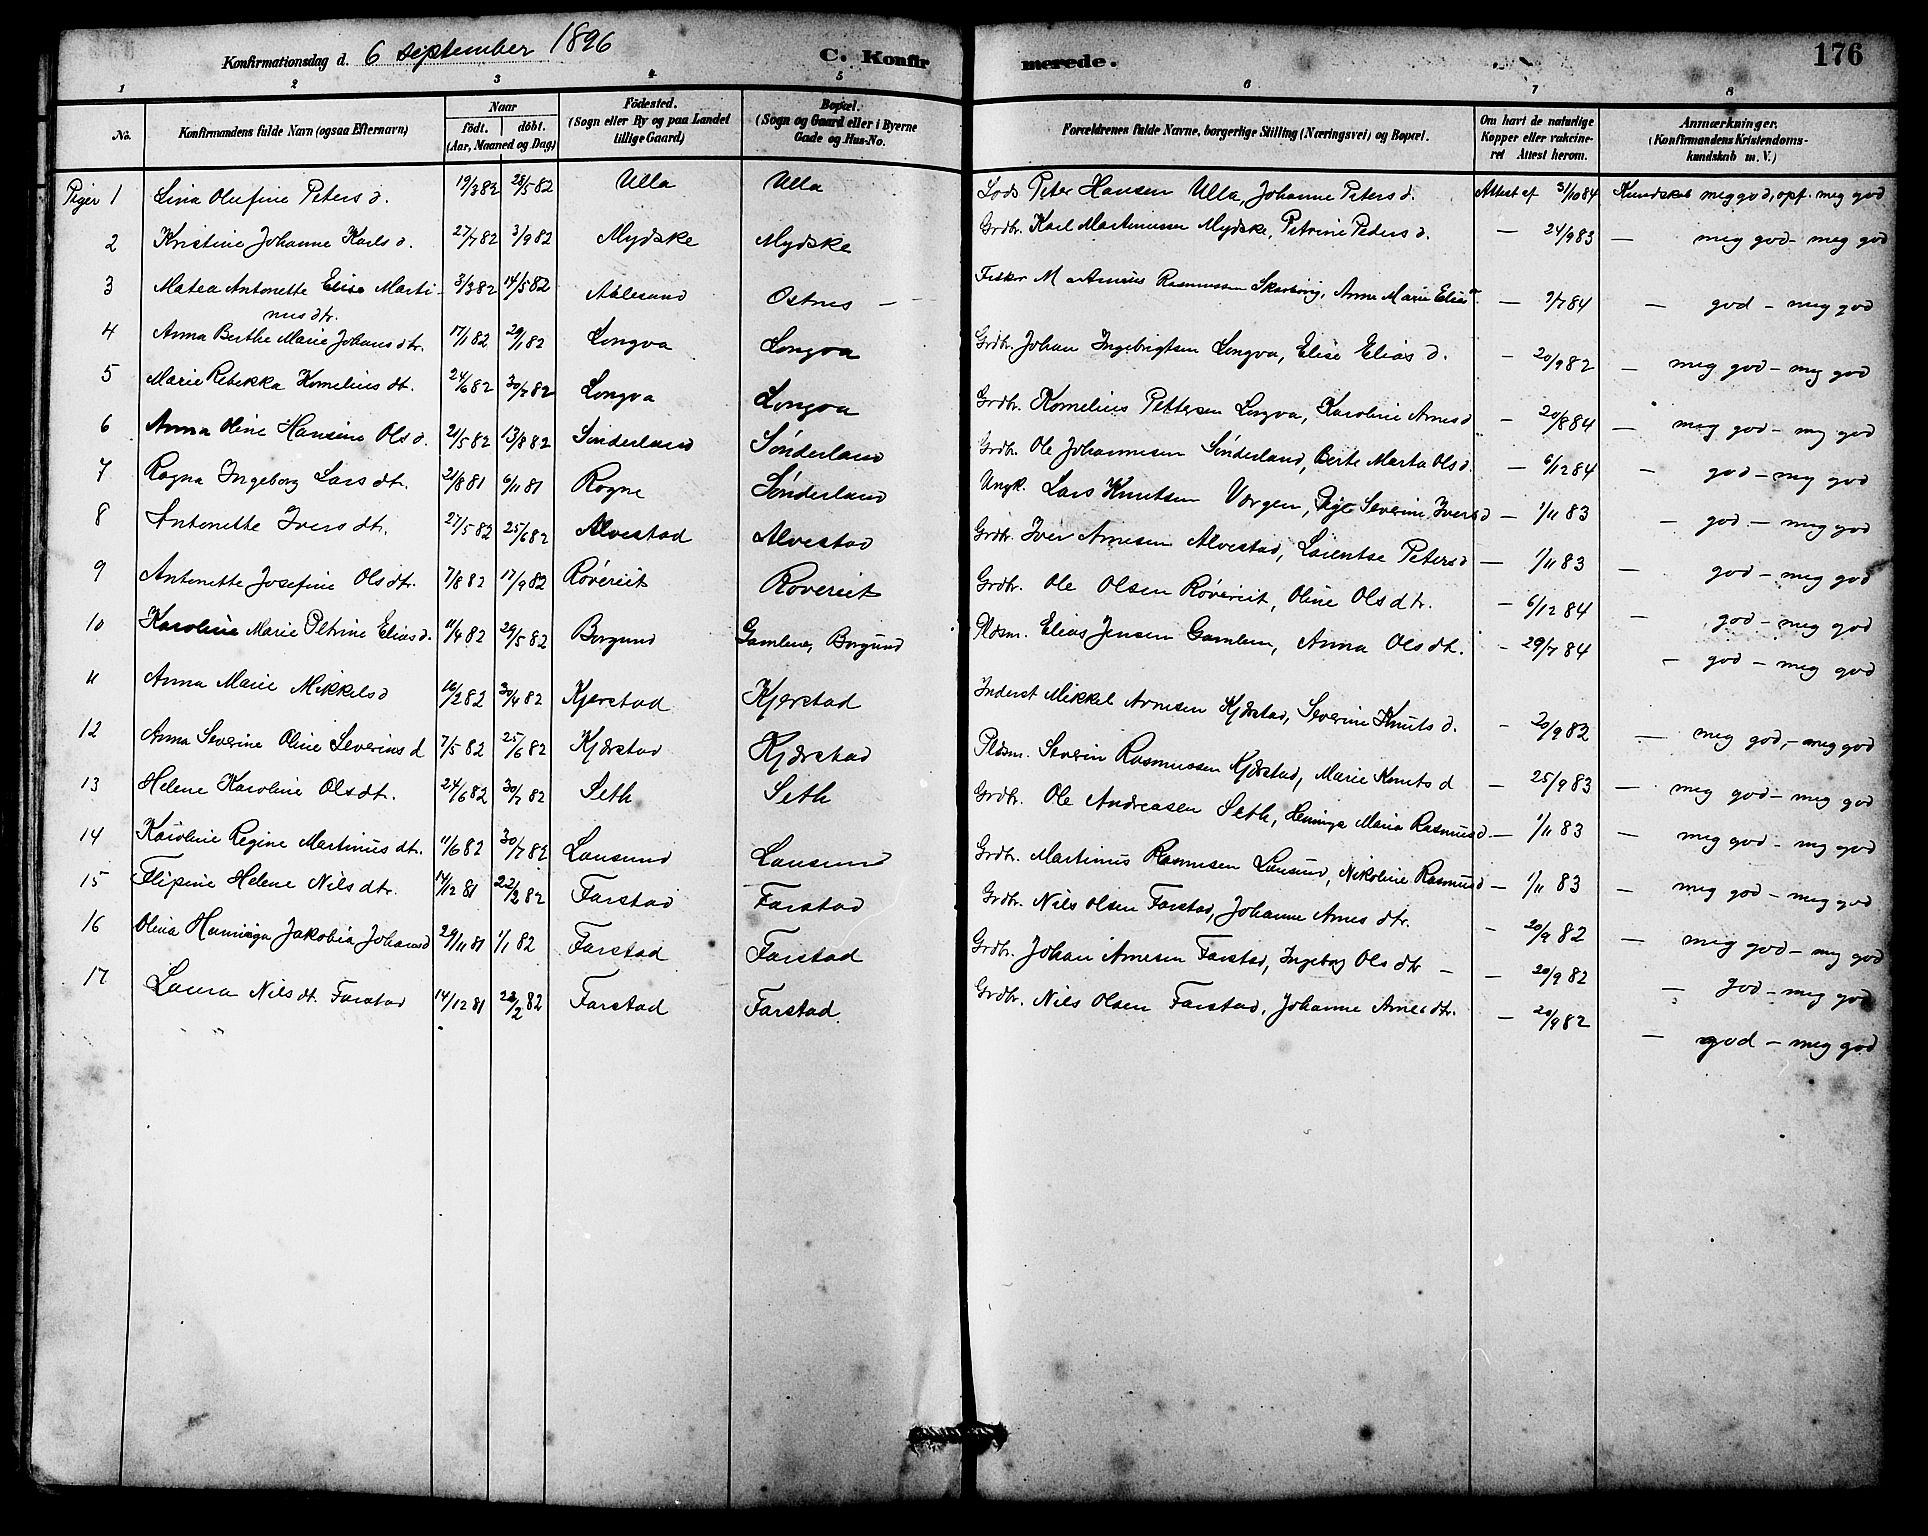 Konfirmationsdag d. 6 september 1896 C. Konfir merede. 176
1 2 3 4 5 6 7 8
No. Konfirmandens fulde Navn (ogsaa Efternavn) Naar födt. döbt. (Aar, Maaned og Dag) Födested. (Sogn eller By og paa Landet tillige Gaard) Bopæl. (Sogn og Gaard eller i Byerne Gade og Hus-No. Forældrenes fulde Navne, borgerlige Stilling (Næringsvei) og Bopæl. Om havt de naturlige Kopper eller vakcineret Attest herom. Anmærkninger. (Konfirmandens Kristendomskundskab m. V.)
Piger 1 Lina Olufine Peters d. 19/3 82 28/5 82 Ulla Ulla Lods Peter Hansen Ulla, Johanne Peters d. Attest af 31/10 84 Kundskab meg god, opf. meg god
2 Kristine Johanne Karls d. 27/7 82 3/9 82 Mydske Mydske Grdbr. Karl Martinussen Mydske, Petrine Peders d. — 24/9 83 — meg god — meg god
3 Matea Antonette Elise Martinus dtr. 3/3 82 14/5 82 Aalesund Ostnes — Fisker Rasmussen Skarbövig, Anne Marie Elias — 9/7 84 — god — meg god
4 Anna Berthe Marie Johans dtr. 17/1 82 29/1 82 Longva Longva Grdbr. Johan Ingebrigtsen Longva, Elise Elias d. — 20/9 82 — meg god — meg god
5 Marie Rebekka Kornelius dt. 24/6 82 30/7 82 Longva Longva Grdbr. Kornelius Pettersen Longva, Karoline Arnes d — 20/8 84 — meg god — meg god
6 Anna Oline Hansine Ols d. 21/5 82 13/8 82 Sönderland Sønderland Grdbr. Ole Johannesen Sønderland, Berte Marta Ols d. — 6/12 84 — god — meg god
7 Ragna Ingeborg Lars dt. 21/8 81 6/11 81 Rogne Sønderland Ungk. Lars Knutsen Vorgen, Pige Severine Ivers d — 1/11 83 — god — meg god
8 Antonette Ivers dt. 27/5 82 25/6 82 Alvestad Alvestad Grdbr. Iver Arnesen Alvestad, Laientse Peters d — 1/11 83 — god — meg god
9 Antonette Josefine Ols dtr. 7/8 82 17/9 82 Röverit Röverit Grdbr. Ole Olsen Röverit, Oline Ols dtr. — 6/12 84 — god — meg god
10 Karoline Marie Petrine Elias d. 11/4 82 29/5 82 Borgund Gamlem, Borgund Pldsm. Elias Jensen Gamlem, Anna Ols dt. — 29/7 84 — god — meg god
11 Anna Marie Mikkels d 16/2 82 30/4 82 Kjerstad Kjerstad Inderst Mikkel Arnesen Kjærstad, Severine Knuts d. — 20/9 82 — meg god, — meg god
12 Anna Severine Oline Severins d 7/5 82 25/6 82 Kjærstad Kjærstad Pldsm. Severin Rasmussen Kjærstad, Marie Knuts d — 25/9 83 — meg god — meg god
13 Helene Karoline Ols dt. 24/6 82 30/7 82 Seth Seth Grdbr. Ole Andreasen Seth, Henninga Maria Rasmus d — 1/11 83 — meg god — meg god
14 Karoline Regine Martinus dt. 11/6 82 30/7 82 Lausund Lausund Grdbr. Martinus Rasmusen Lausund, Nikoline Rasmus d — 1/11 83 — meg god — meg god
15 Filipine Helene Nils dtr. 14/12 81 22/2 82 Farstad Farstad Grdbr. Nils Olsen Farstad, Johanne Arnes dtr. — 20/9 82 — meg god — meg god
16 Olina Henninga Jakobia Johans d 29/11 81 1/1 82 Farstad Farstad Grdbr. Johan Arnesen Farstad, Ingeborg Ols dtr — — 20/9 82 — god — meg god
17 Laura Nils dt. Farstad 14/12 81 22/2 82 Farstad Farstad. Grdbr. Nils Olsen Farstad, Johanne Arnes dtr. — 20/9 82 — god — meg god